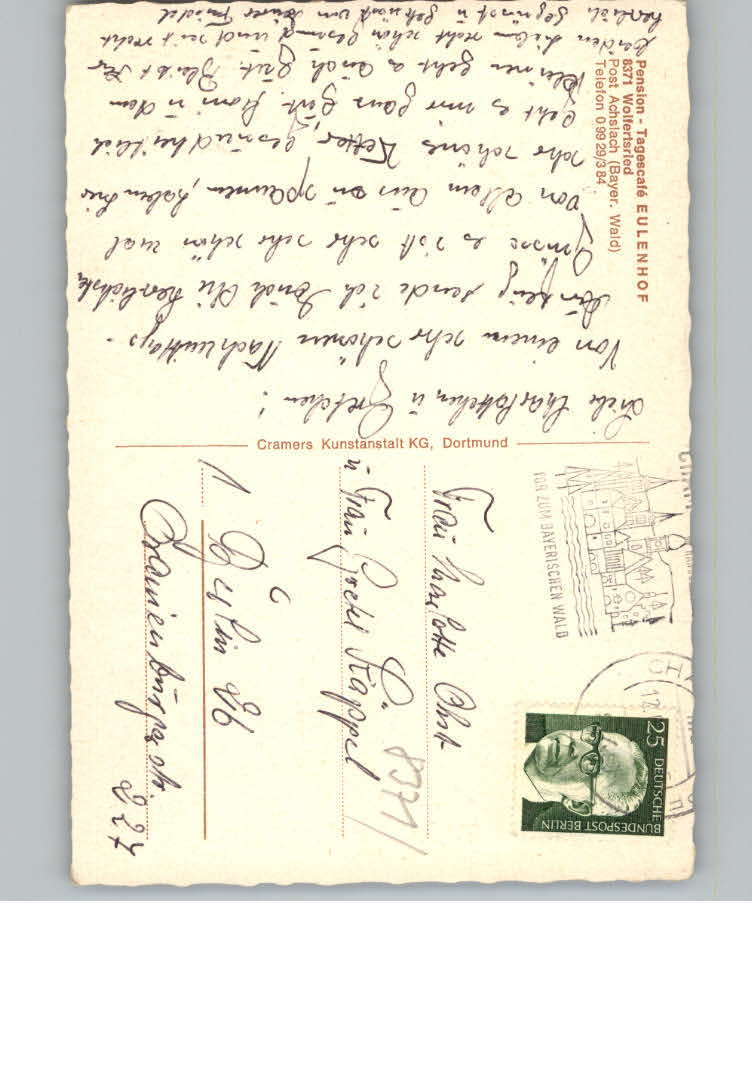 Pension - Tagescafé EULENHOF
8371 Wolfertsried
Post Achslach (Bayer. Wald)
Telefon 0 99 29/3 84
Liebe Charlottchen u Gretchen!
Von einem sehr schönen Nachmittags-
Ausflug sende ich Euch die herzlichsten
Grüsse es ist sehr schön mal
von allem aus zu spannen, haben hier
sehr schönes Wetter, gesundheitlich
geht es mir ganz gut
Kleinen geht es auch gut. Bleibt Ihr
beiden Lieben recht schön gesund und seit recht
herzlich gegrüsst u geküsst von Eurer
Cramers Kunstanstalt KG, Dortmund
TOR ZUM BAYERISCHEN WALD
25 DEUTSCHE
BUNDESPOST BERLIN
Frau Charlotte Obst
u Frau Gretel Käppel
8371/
1 Berlin 26
Oranienburgerstr.
227